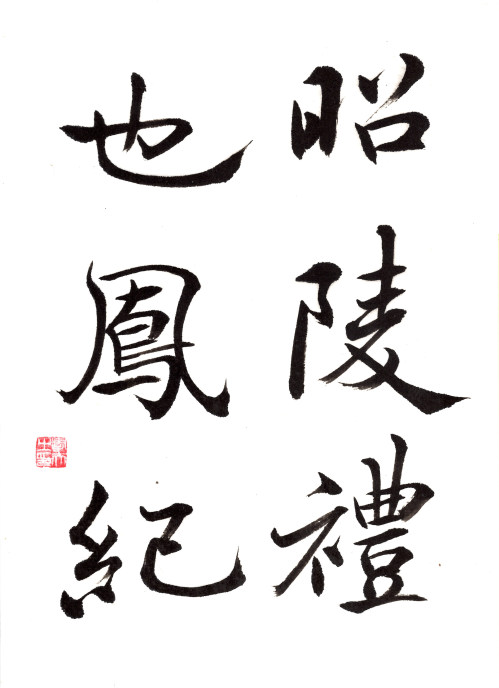 昭陵禮
也鳳紀